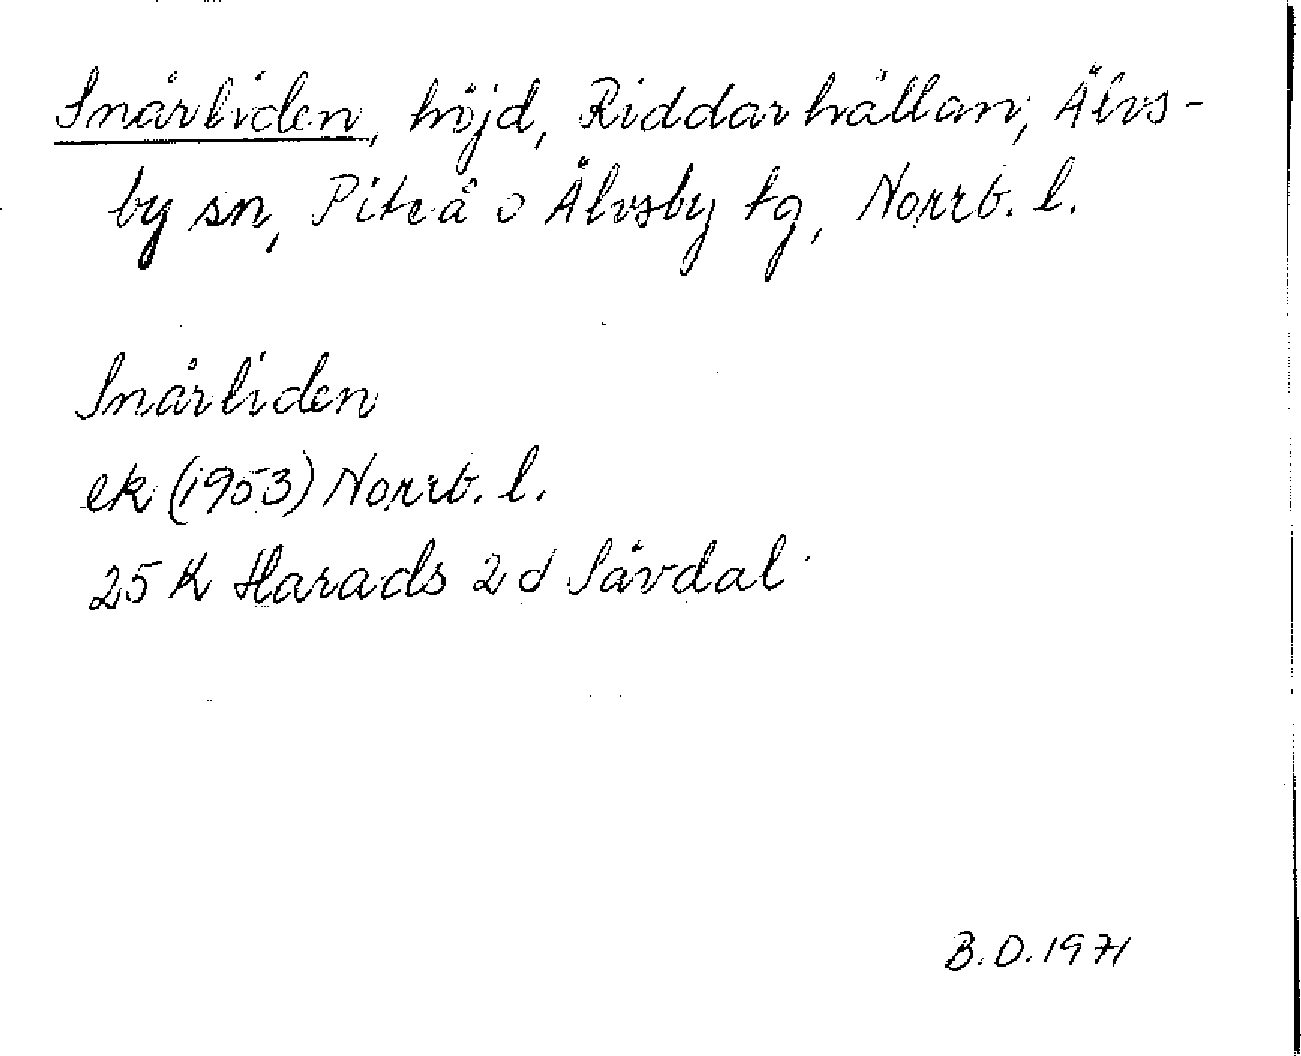 Snårliden, höjd, Riddarhällan, Älvs-
by sn, Piteå o Älvsby tg, Norrb. l.
Snårliden
ek (1953) Norrb. l.
25 K Harads 2 d Såvdal
B.O. 1971